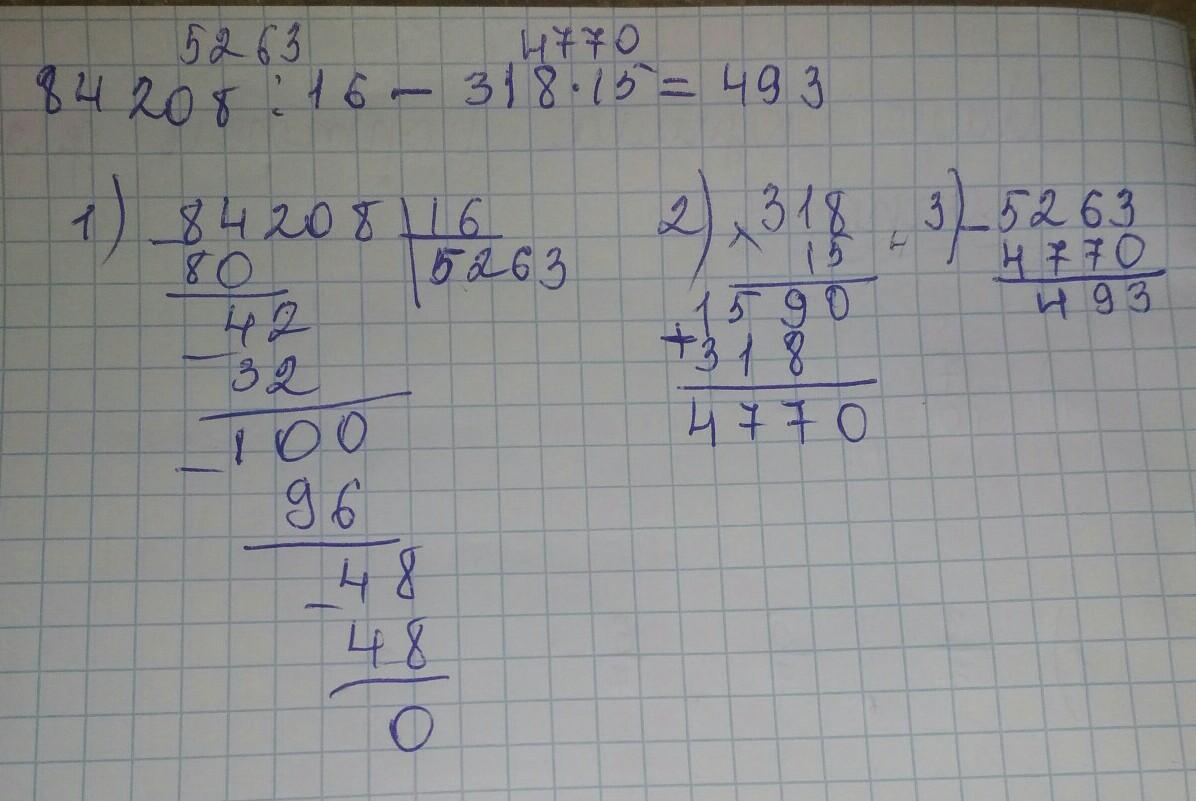 5263 4770
84208 : 16 - 318 · 15 = 493
1) - 84208 | 16
80 5263
- 42
32
- 100
96
- 48
48
0
2) × 318
15
1590
+ 318
4770
3) - 5263
4770
493